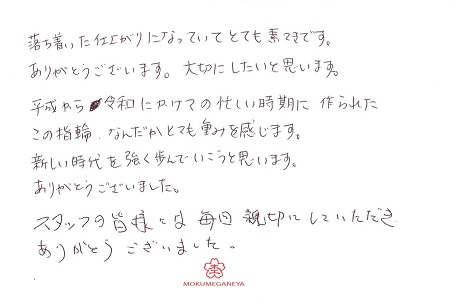 落ち着いた仕上がりになっていてとても素てきです。
ありがとうございます。大切にしたいと思います。
平成から令和にかけての忙しい時期に作られた
この指輪、なんだかとても重みを感じます。
新しい時代を強く歩んでいこうと思います。
ありがとうございました。
スタッフの皆様には毎回親切にしていただき
ありがとうございました。
MOKUMEGANEYA